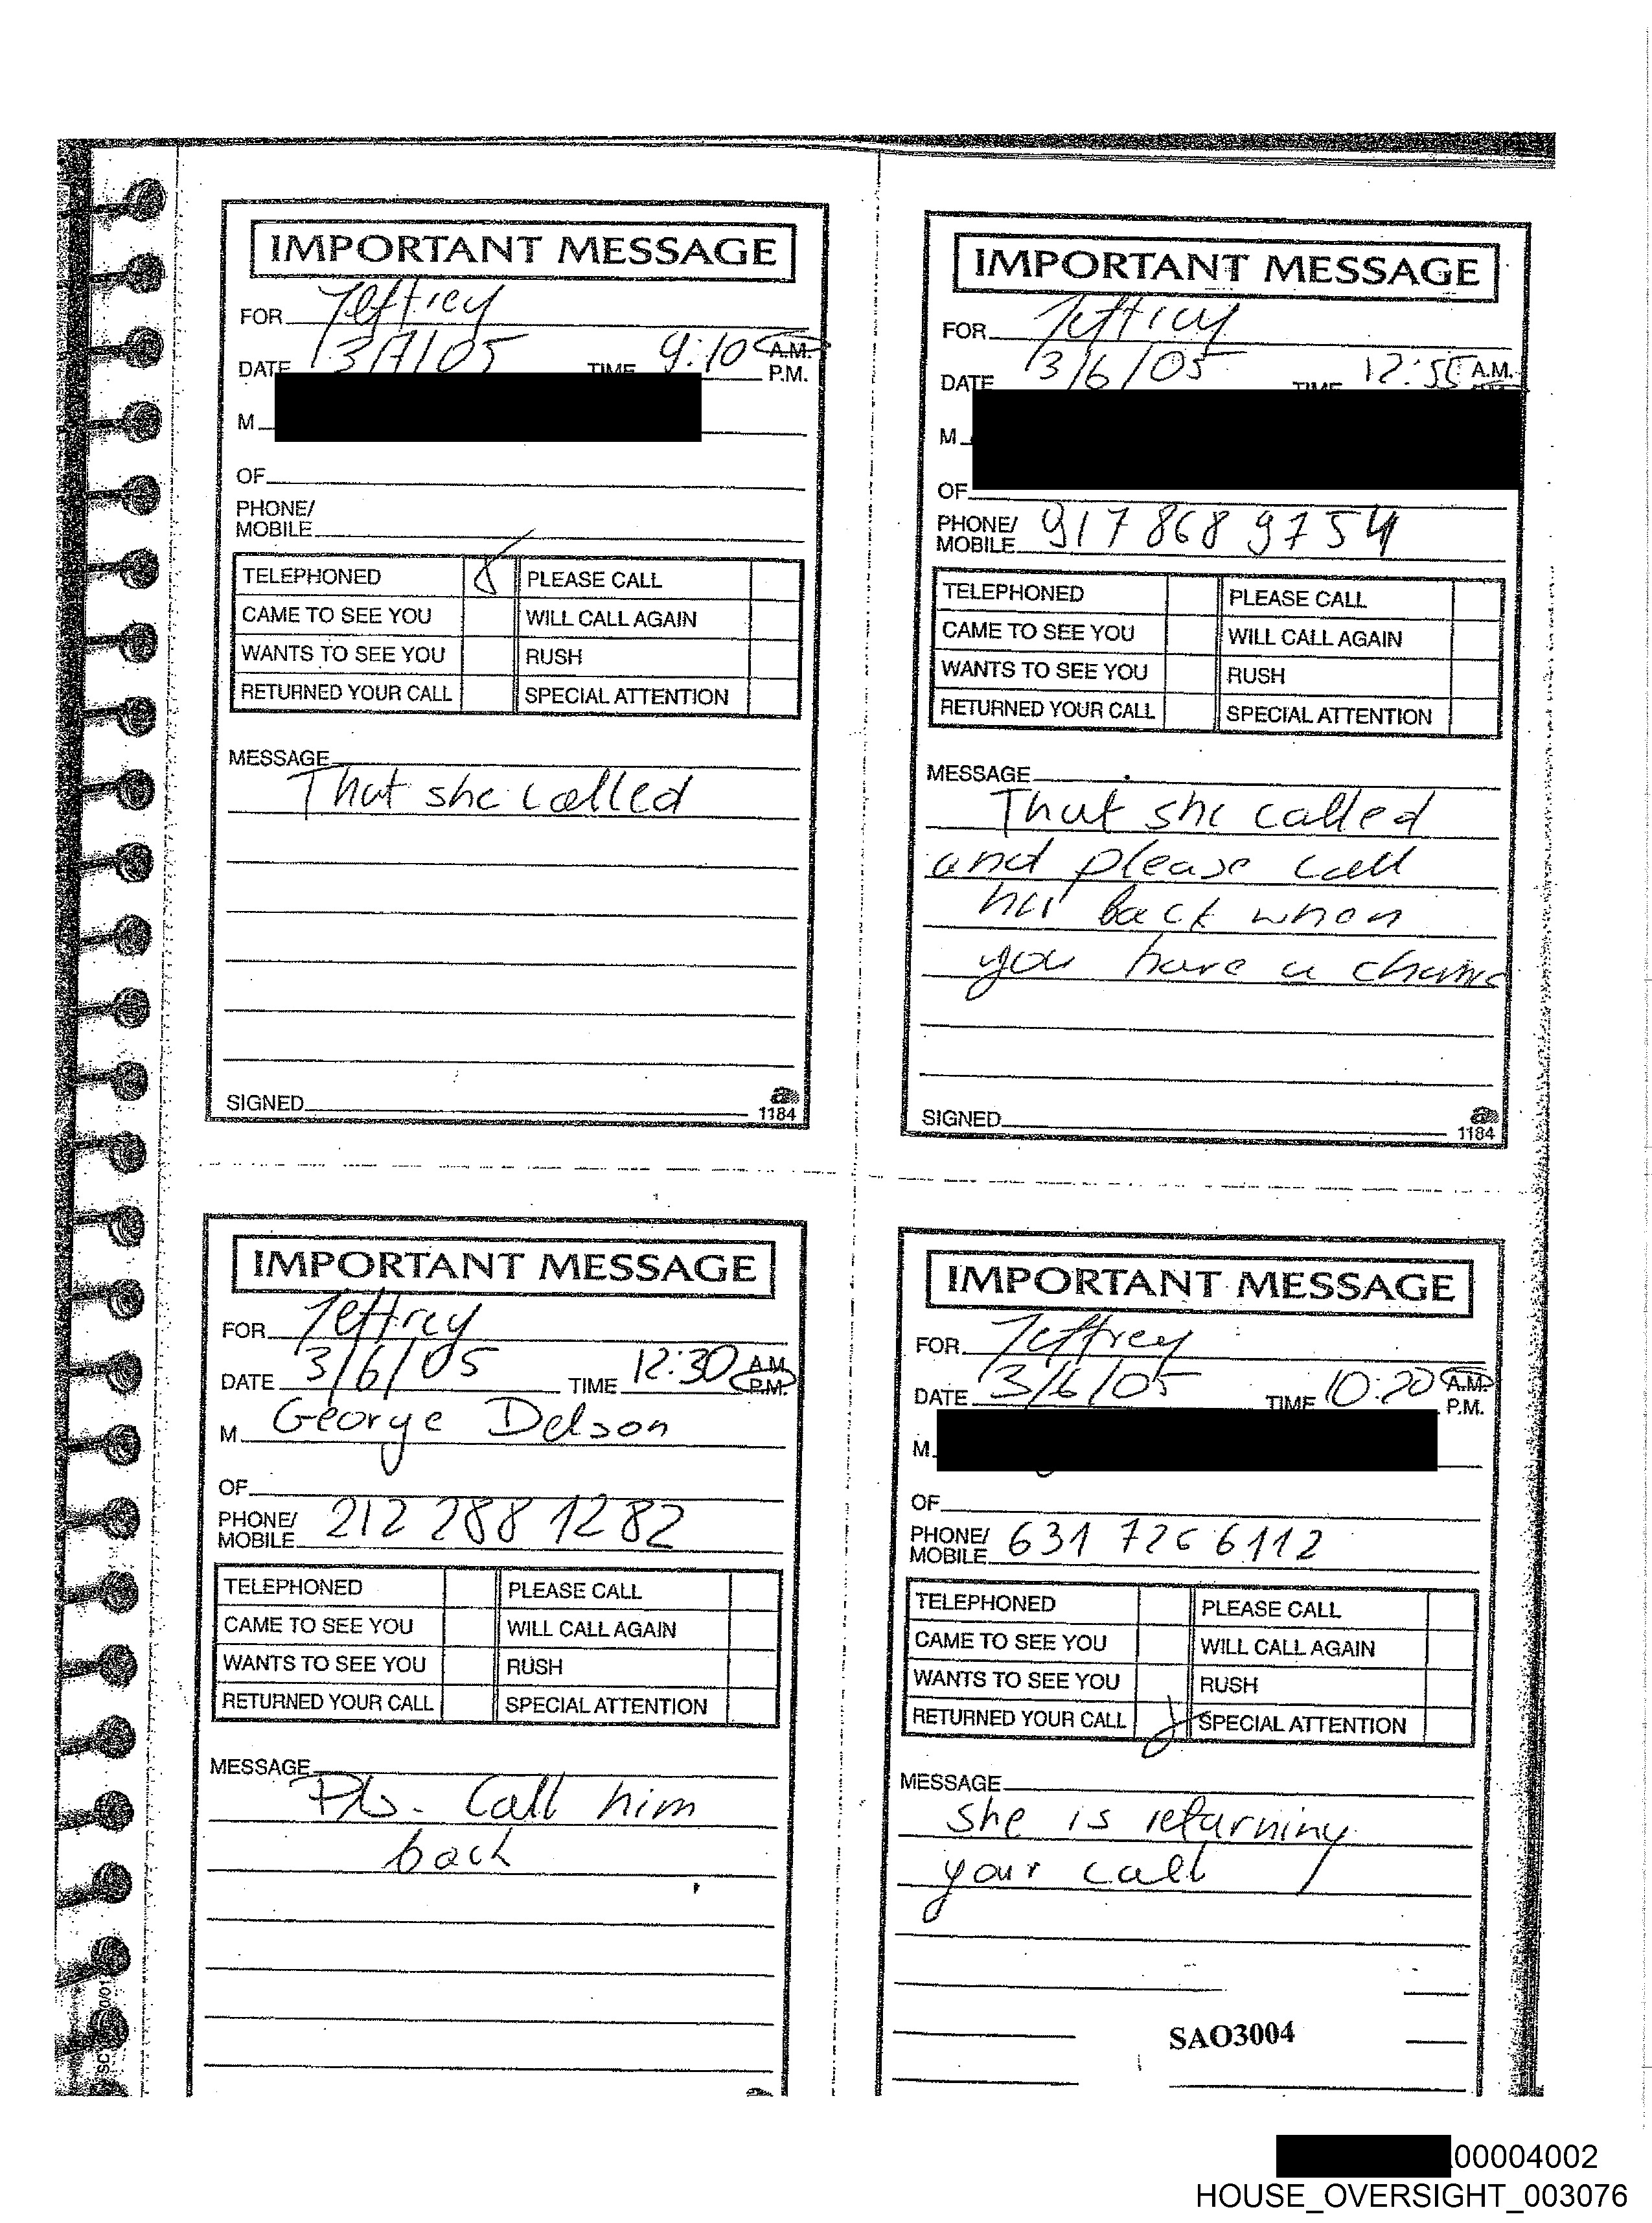 IMPORTANT MESSAGE
FOR Jeffrey
DATE 3/7/05 TIME 9:10 A.M.
P.M.
M
OF
PHONE/
MOBILE
TELEPHONED PLEASE CALL
CAME TO SEE YOU WILL CALL AGAIN
WANTS TO SEE YOU RUSH
RETURNED YOUR CALL SPECIAL ATTENTION
MESSAGE
That she called
SIGNED
1184
IMPORTANT MESSAGE
FOR Jeffrey
DATE 3/6/05 TIME 12:55 A.M.
M
OF
PHONE/
MOBILE 917 868 9754
TELEPHONED PLEASE CALL
CAME TO SEE YOU WILL CALL AGAIN
WANTS TO SEE YOU RUSH
RETURNED YOUR CALL SPECIAL ATTENTION
MESSAGE
That she called
and please call
her back when
you have a chance
SIGNED
1184
IMPORTANT MESSAGE
FOR Jeffrey
DATE 3/6/05 TIME 12:30 A.M.
P.M.
M George Delson
OF
PHONE/
MOBILE 212 288 1282
TELEPHONED PLEASE CALL
CAME TO SEE YOU WILL CALL AGAIN
WANTS TO SEE YOU RUSH
RETURNED YOUR CALL SPECIAL ATTENTION
MESSAGE
Pls. Call him
back
IMPORTANT MESSAGE
FOR Jeffrey
DATE 3/6/05 TIME 10:20 A.M.
P.M.
M
OF
PHONE/
MOBILE 631 726 6112
TELEPHONED PLEASE CALL
CAME TO SEE YOU WILL CALL AGAIN
WANTS TO SEE YOU RUSH
RETURNED YOUR CALL SPECIAL ATTENTION
MESSAGE
she is returning
your call
SAO3004
00004002
HOUSE_OVERSIGHT_003076